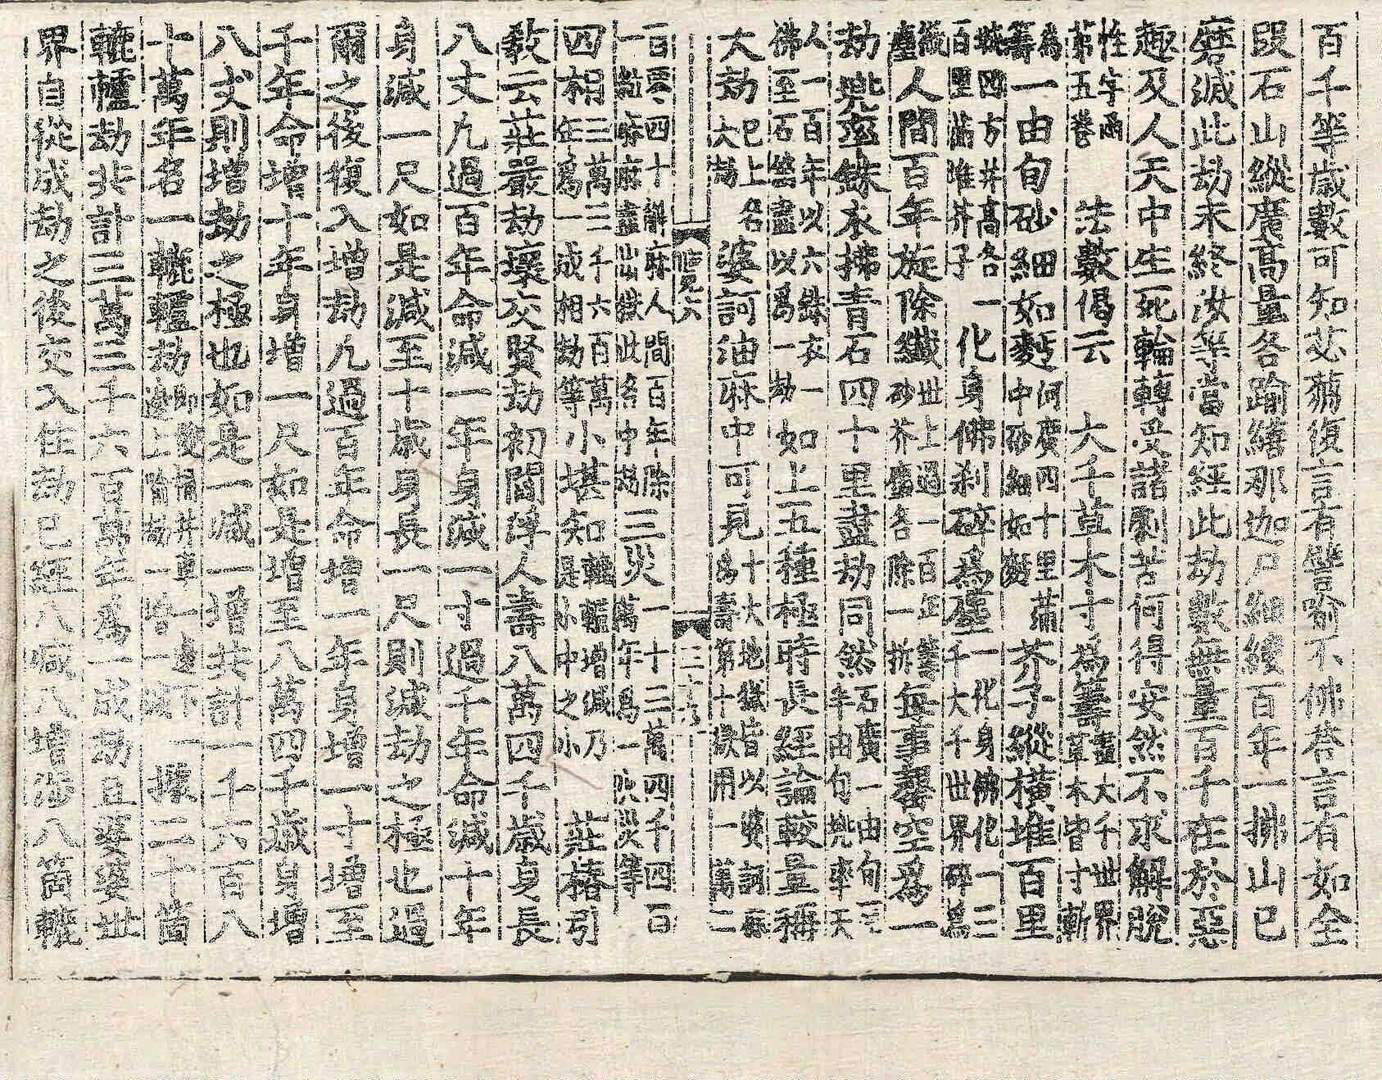 百千等歲數可知苾蒭復言有譬喻不佛荅言有如全
段石山縱廣高量各踰繕那迦尸細縷百年一拂山已
磨滅此劫未終汝等當知經此劫數無量百千在於惡
趣及人天中生死輪轉受諸劇苦何得安然不求解脫
性字函第五卷 法數偈云 大千草木寸爲籌盡大千世界草木皆寸斬
爲籌一由旬砂細如麪何廣四十里滿中砂細如麪 芥子縱橫堆百里
城四方井高各百里滿堆芥子 一化身佛剎碎爲塵一化身佛化一三千大千世界碎爲
微塵人間百年旋除纖世上過一百年砂芥塵各除一 每事罄空爲一
劫兜率銖衣拂青石四十里盡劫同然石廣一由旬半由旬兜率天
人一百年以六銖衣一拂至石盡以爲一劫 如上五種極時長經論較量稱
大劫已上各大劫 婆訶油麻中可見十大地獄皆以婆訶麻爲壽第十獄用一萬二
百四十斛麻人間百年除一粒麻麻盡出獄此名中劫 三災一十三萬四千四百萬年爲一 災等
四相三萬三千六百萬年爲一成相劫等 小堪知轆轤增減乃是小中之小 莊椿引
敎云莊嚴劫壞交賢劫初閻浮人壽八萬四千歲身長
八丈凡過百年命減一年身減一寸過千年命減十年
身減一尺如是減至十歲身長一尺則減劫之極也過
爾之後復入增劫凡過百年命增一年身增一寸增至
千年命增十年身增一尺如是增至八萬四千歲身增
八丈則增劫之極也如是一減一增共計一千六百八
十萬年名一轆轤劫 二十箇
轆轤劫共計三萬三千六百萬年爲一成劫且娑婆世
界自從成劫之後交入住劫已經八減八增涉八箇轆